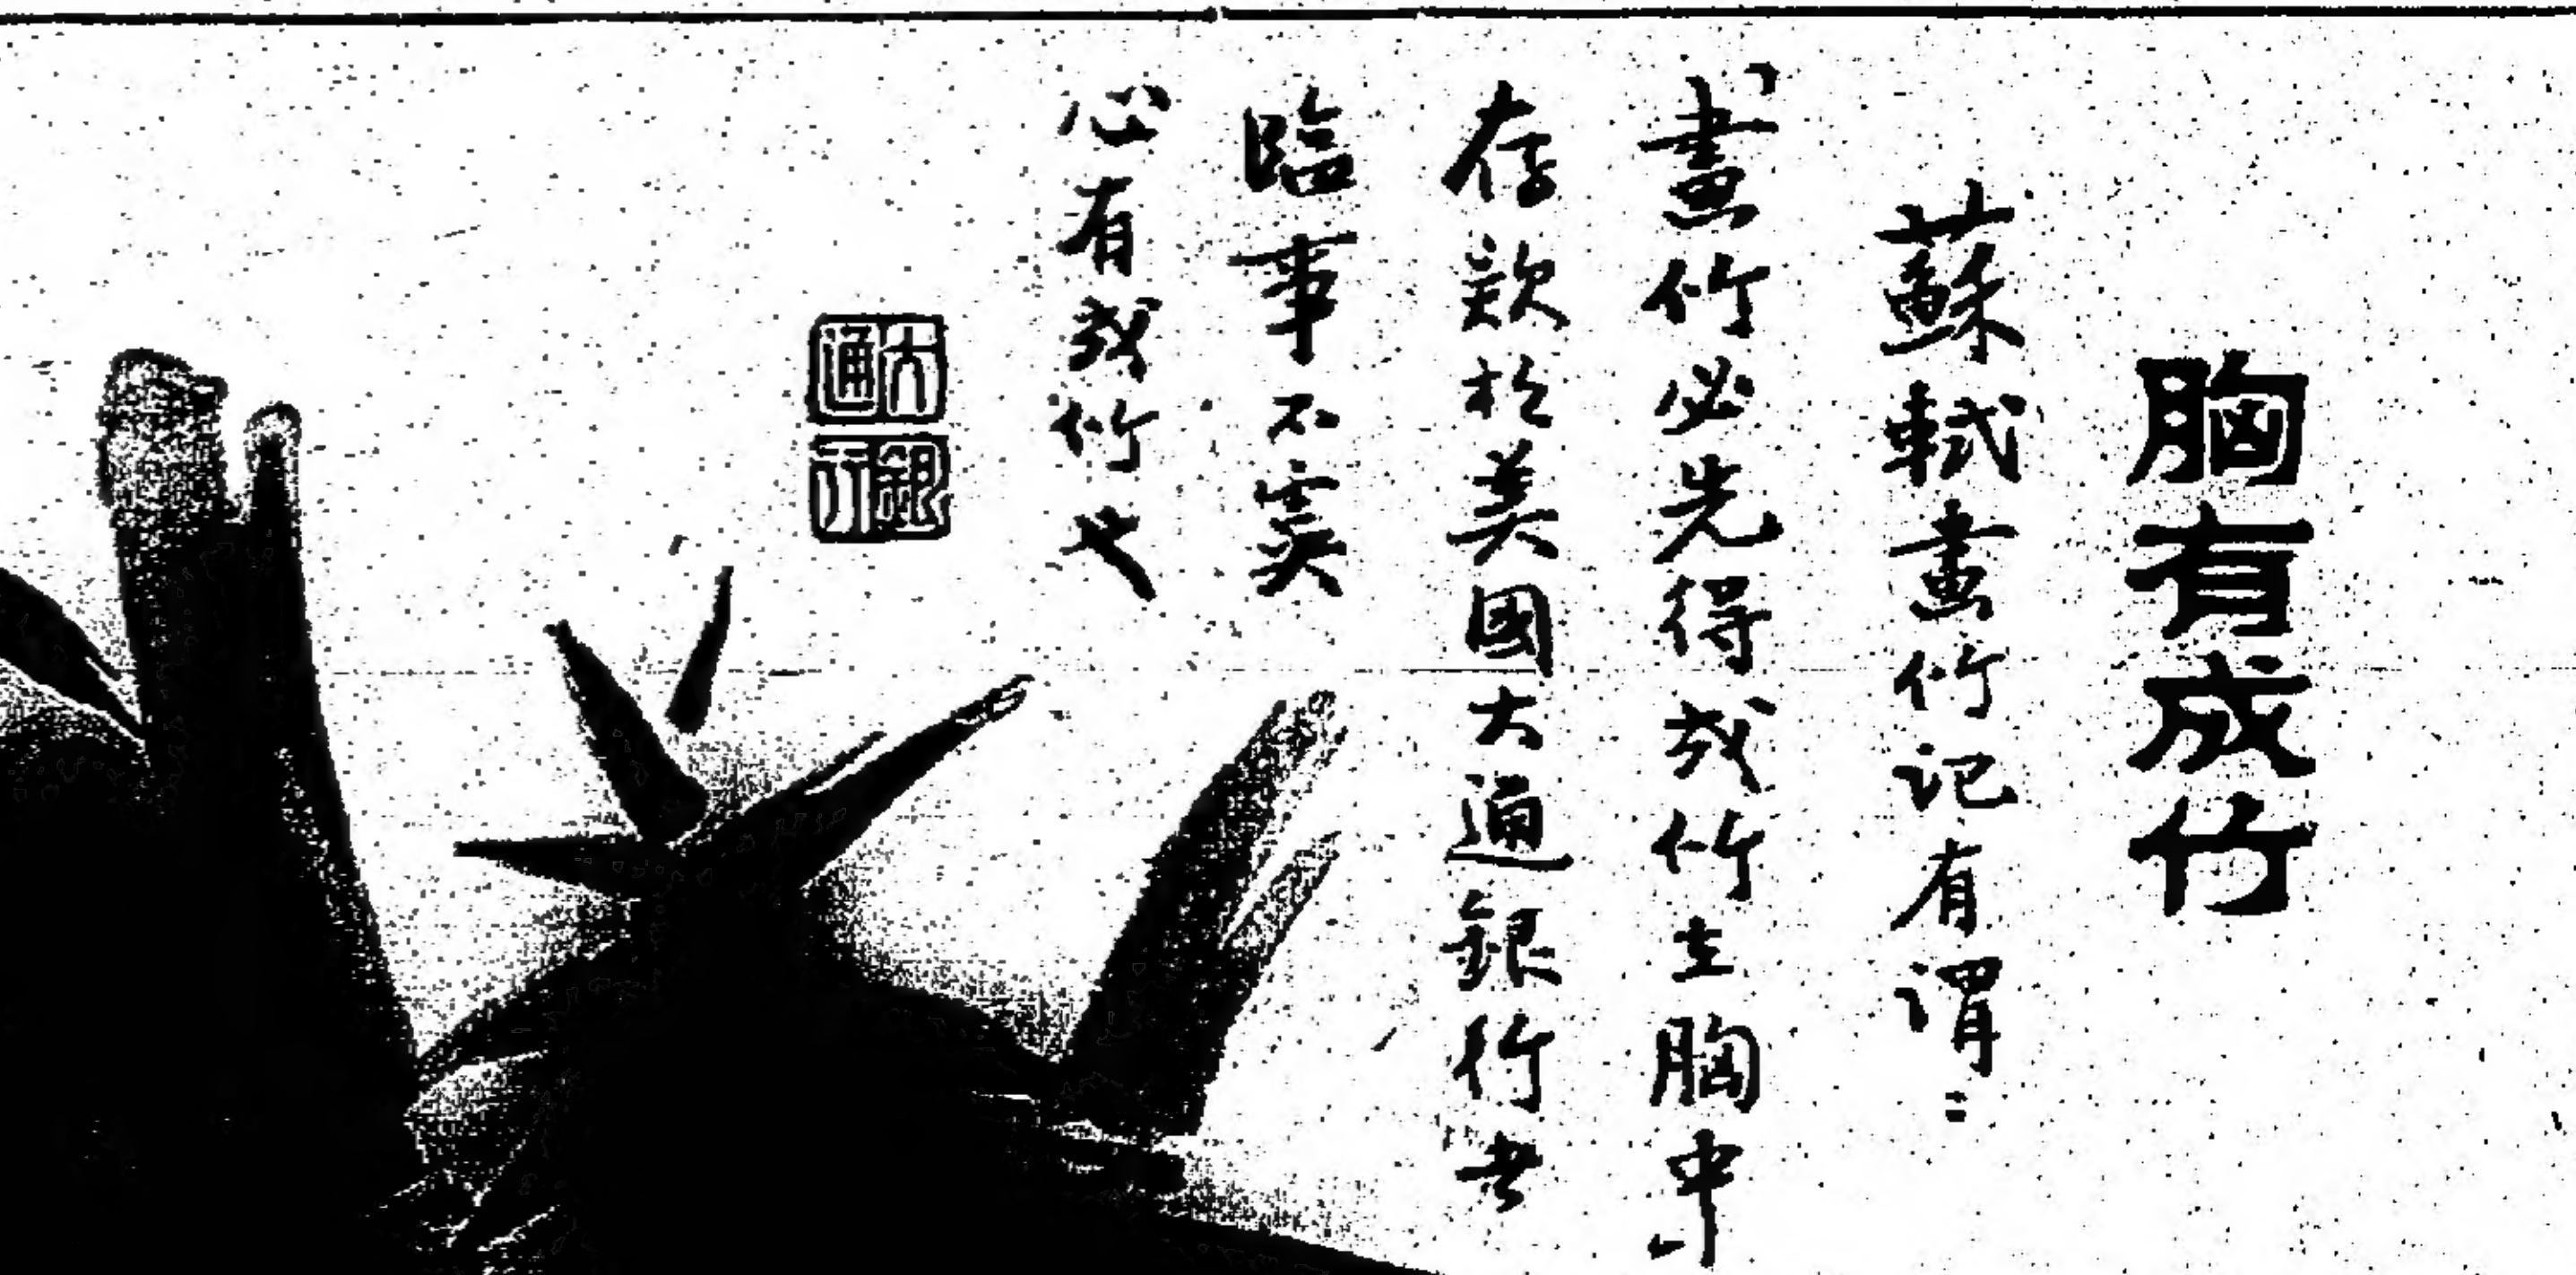 胸有成竹
蘇軾畫竹记有謂：
「畫竹必先得成竹在胸中」
存款於美國大通銀行者
臨事不窶
心有成竹也
大通
銀行